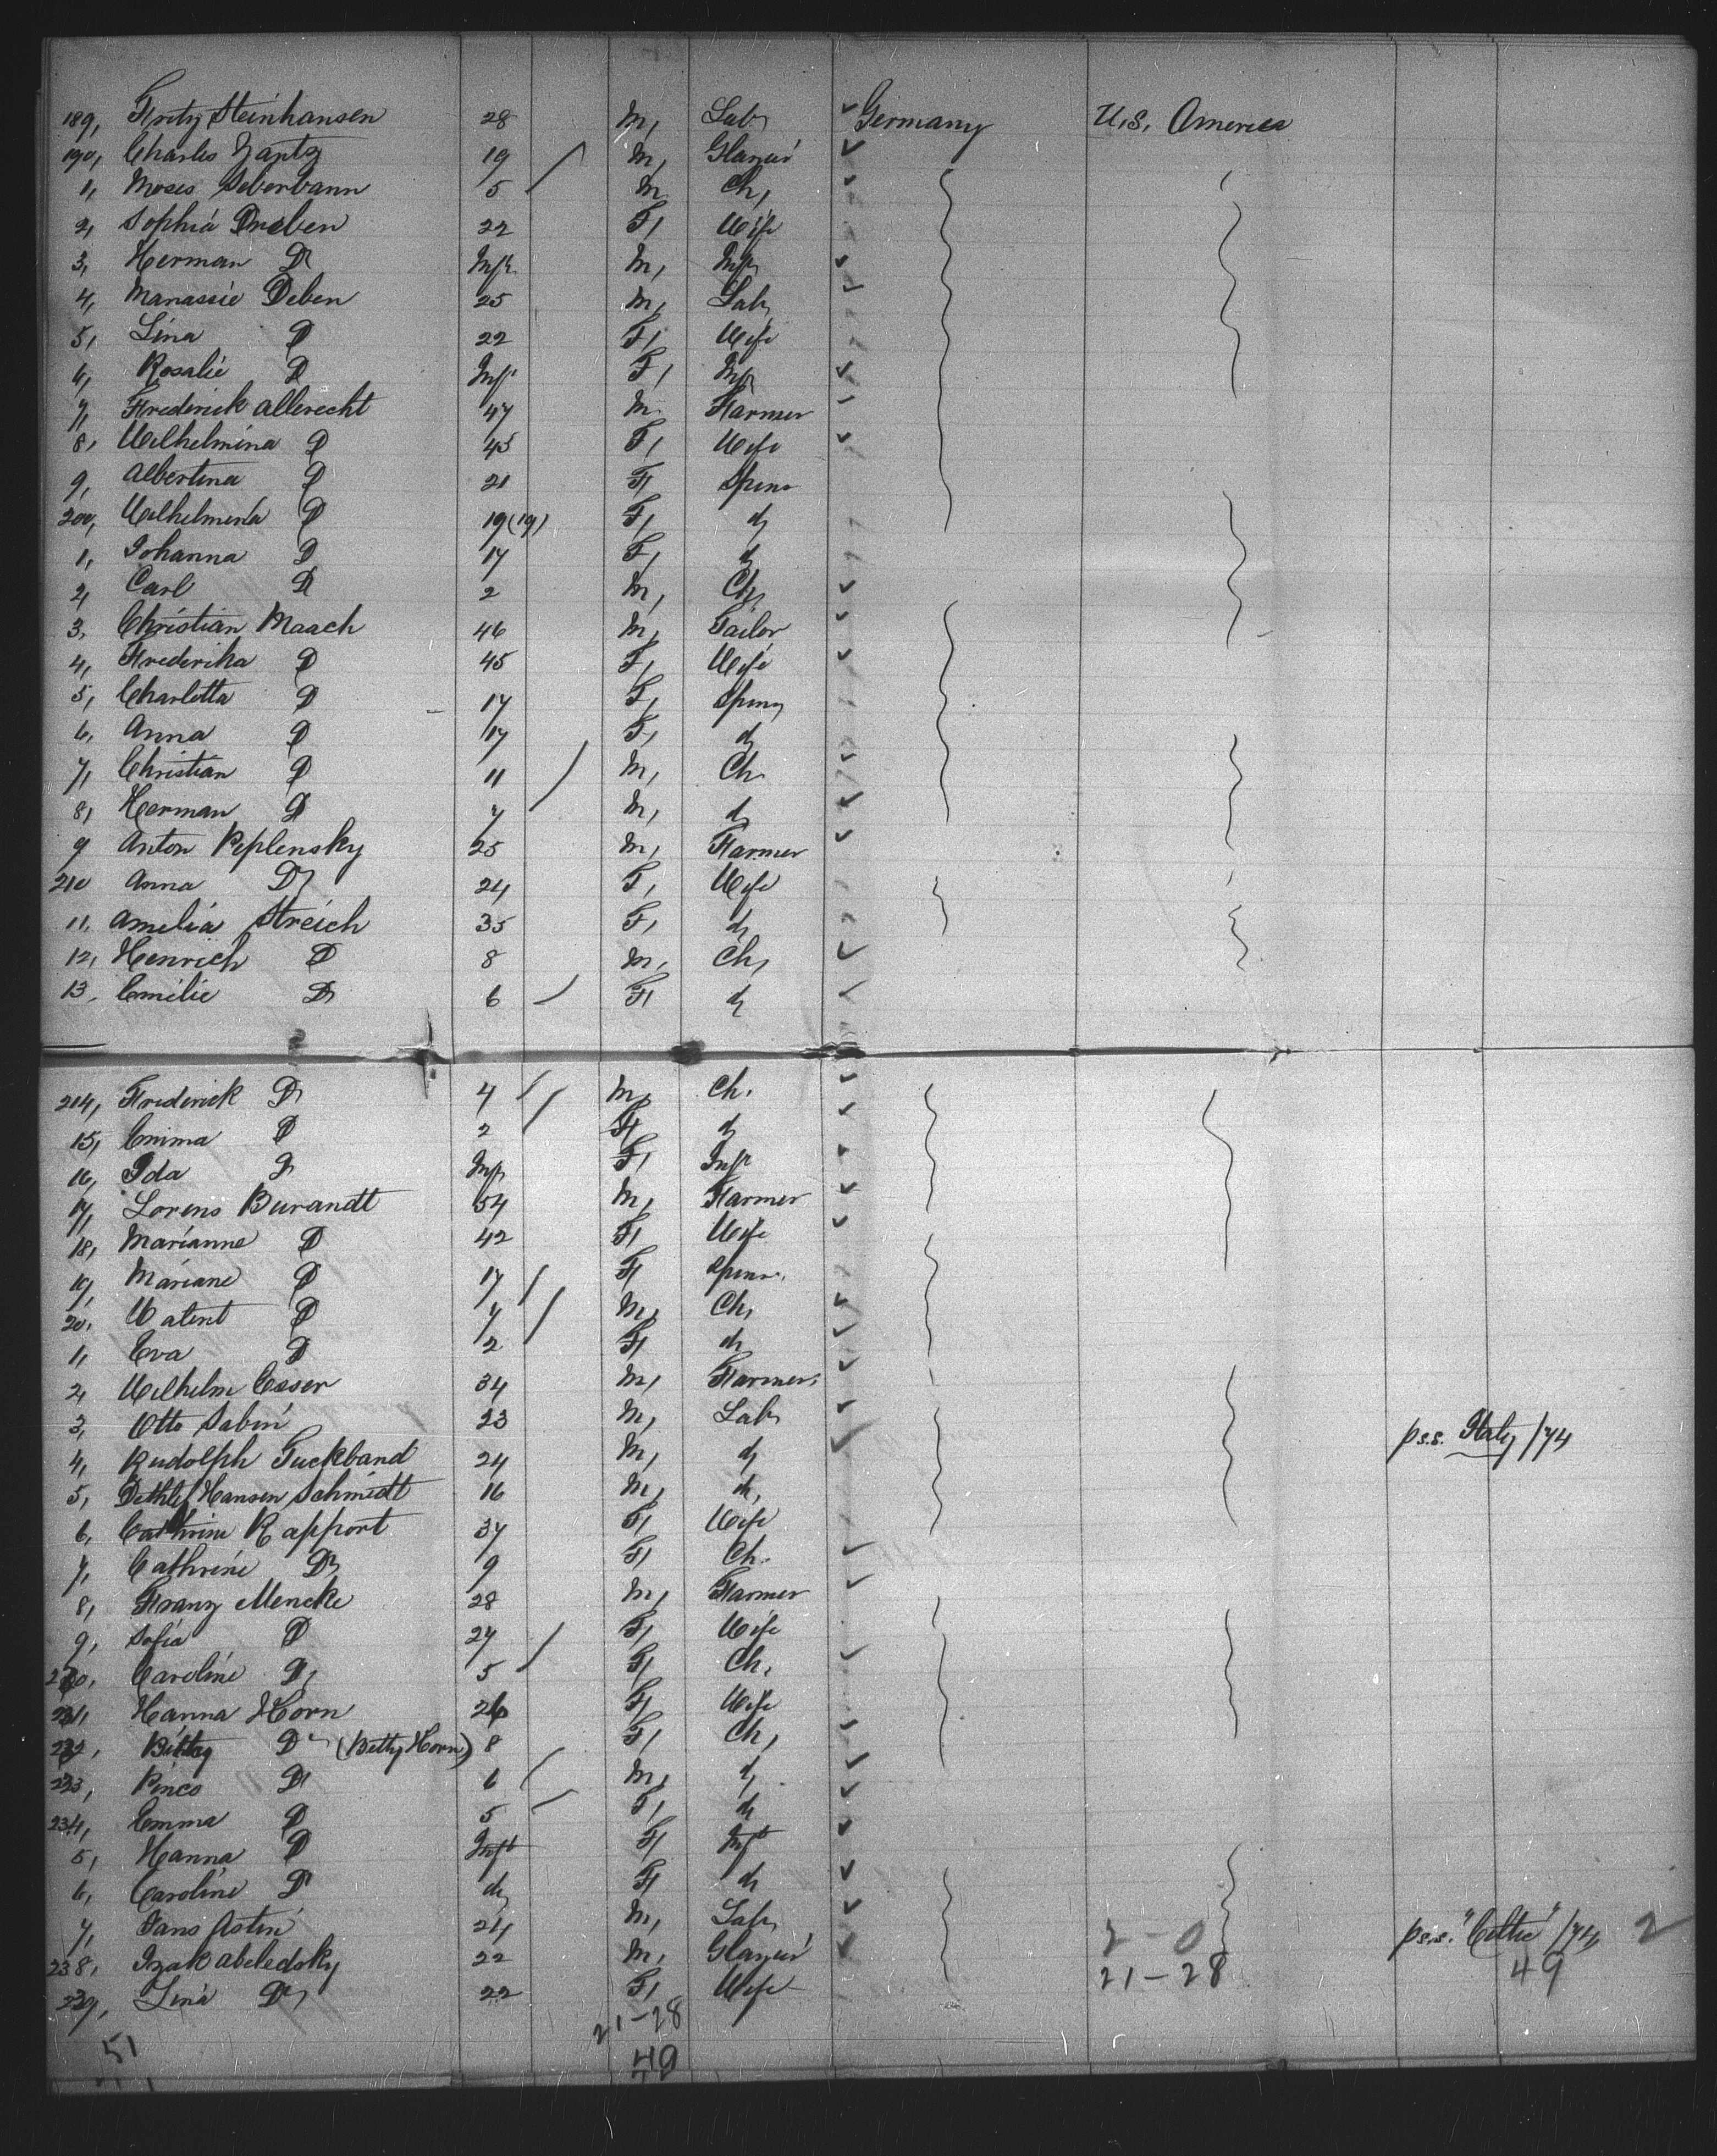 189, Fritz Steinhausen 28 M, Lab, Germany U.S. America
190, Charles Zantz 19 M, Glazier
1, Moses Seberbann 5 M Ch,
2, Sophia Dreben 22 F, Wife
3, Herman D Inft. M, Inf,
4, Manassie Deben 25 M, Lab,
5, Lina D 22 F, Wife
6, Rosalie D Inft F, Inf
7, Frederick Albrecht 47 M. Farmer
8, Wilhelmina D 45 F, Wife
9, Albertina D 21 F, Spin
200, Wilhelmina D 19 (19) F, d,
1, Johanna D 17 F, d,
2, Carl D 2 M, Ch,
3, Christian Maach 46 M, Tailor
4, Frederika D 45 F, Wife
5, Charlotta D 17 F, Spin,
6, Anna D 17 F, d,
7, Christian D 11 M, Ch.
8, Herman D 7 M, d,
9 Anton Peplensky 25 M, Farmer
210 Anna D, 24 F, Wife
11, Amelia Streich 35 F, d,
12, Henrich D 8 M, Ch,
13, Emilie D, 6 F, d,
214, Frederick D, 4 M, Ch.
15, Emma D 2 F, d,
16, Ida D, Inf, F, Inft
17, Lorens Burandt 54 M, Farmer
18, Marianne D 42 F, Wife
19, Mariane D 17 F, Spin.
20, Valent D 7 M, Ch,
1, Eva D 2 F, d,
2, Wilhelm Esser 34 M, Farmer,
3, Otto Sabin 23 M, Lab, p s.s. Italy /74
4, Rudolph Guckband 24 M, d,
5, Dethlef Hansen Schmidt 16 M, d,
6, Cathrine Rapport 37 F, Wife
7, Cathrine D, 9 F, Ch.
8, Franz Mencke 28 M, Farmer
9, Sofia D 27 F, Wife
230, Caroline D, 5 F, Ch,
231, Hanna Horn 26 F, Wife
232, D (Betty Horn) 8 F, Ch,
233, Pinco D 6 M, d,
234, Emma D 5 F, d,
5, Hanna D Inft F, Inft
6, Caroline D d, F, d,
7, Jans Astin 24 M, Lab, 2-0 p s.s. "Celtic" /74 2
238, Izak Abeledsky 22 M, Glazier 21-28 49
239, Lina D, 22 F, Wife
21-28
51 49